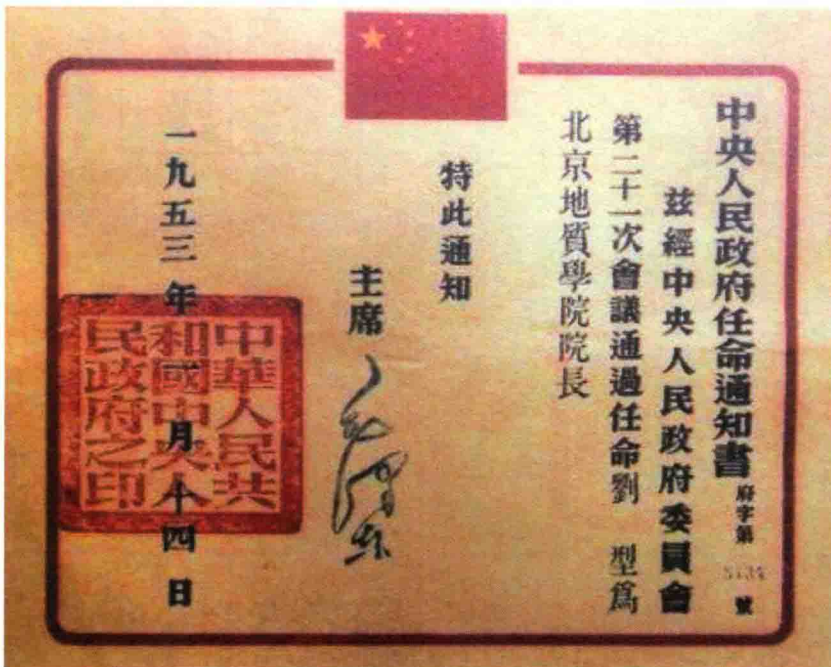 中央人民政府任命通知書
府字第 號
兹經中央人民政府委員會
第二十一次會議通過任命劉 型爲
北京地質學院院長
特此通知
主席 毛澤东
一九五三年一月十四日
中華人民共
和國中央人
民政府之印